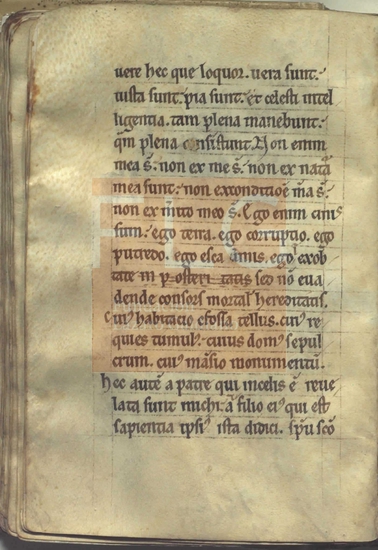 uere hec que loquor. uera sunt.
iusta sunt. pia sunt. et celesti intel
ligentia. tam plena manebunt.
qm̄ plena consistunt. Non enim
mea s̄. non ex me s̄. non ex natᵃ
mea sunt. non exconditiōe m̄a s̄.
non ex mito meo s̄. Ego enim cinis
sum. ego terra. ego corruptio. ego
putredo. ego esca
tate m posteri tatis sed nō eua
dende consors mortal hereditatis.
cui' habitacio effossa tellus. cui' re
quies tumul'. cuius dom' sepul
crum. cui' māsio monumentū.
hec autē a patre qui incelis ē reue
lata sunt michi. a filio ei' qui est
sapientia ipsi' ista didici. sp̄u sc̄o